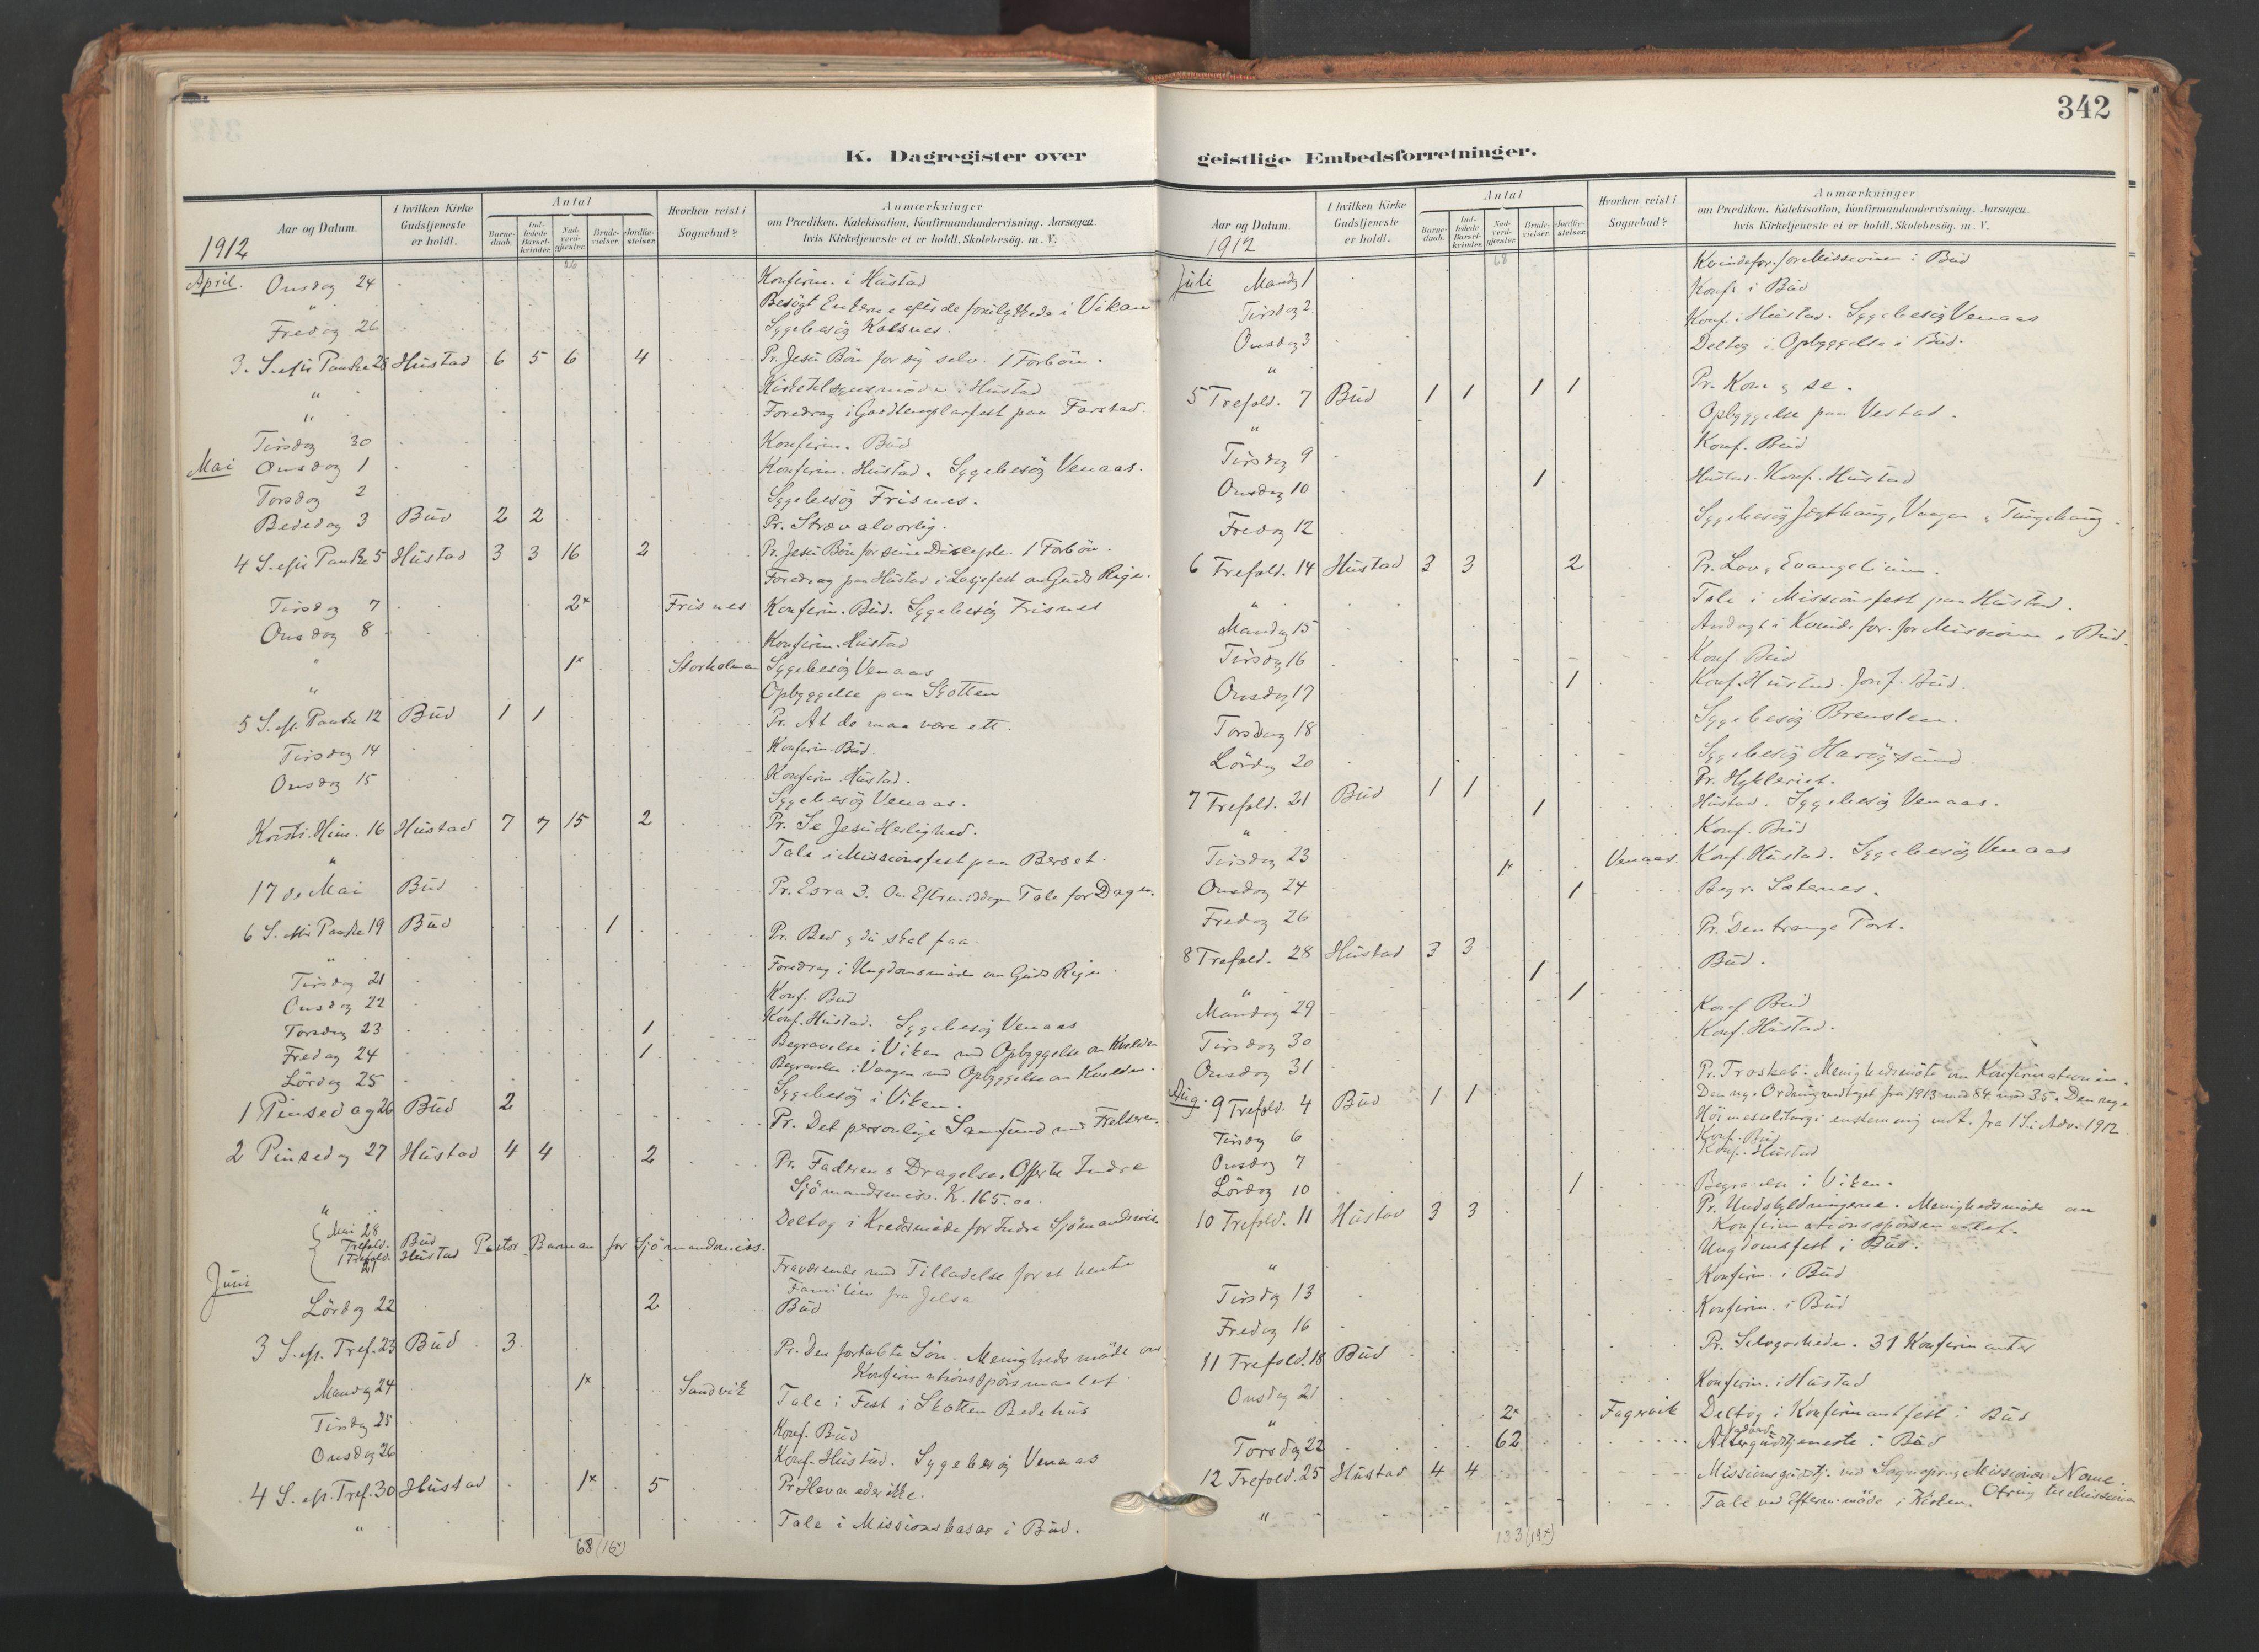 342
K. Dagregister over
geistlige Embedsforretninger.
Aar og Datum.
I hvilken Kirke Gudstjeneste er holdt.
Antal
Barnedaab.
Indledede Barselkvinder.
Nadverdgjester.
Brudevielser.
Jordfæstelser.
Hvorhen reist i Sognebud?
Anmærkninger
om Prædiken, Katekisation, Konfirmandundervisning, Aarsagen, hvis Kirketjeneste ei er holdt, Skolebesøg, m. V.
1912
26
April. Onsdag 24 Konfirm. i Hustad
" Besøgt Enkerne efter de forulykkede i Vikan
Fredag 26 Sygebesög Kalsnes.
3. S. eft. Paaske 28 Hustad 6 5 6 4 Pr. Jesu Bön for sig selv. 1 Forbön.
" i Hustad
" Foredrag i Goodtemplarfest paa Farstad.
Tirsdag 30 Konfirm. Bud
Mai Onsdag 1 Konfirm. Hustad. Sygebesög Venaas.
Torsdag 2 Sygebesög Frisnes.
Bededag 3 Bud 2 2 Pr. Stræv alvorlig.
4 S. eft. Paaske 5 Hustad 3 3 16 2 Pr. Jesu Bön for sine Disciple. 1 Forbön.
Foredrag paa Hustad i Losjefest om Guds Rige.
Tirsdag 7 2x Frisnes Konfirm. Bud. Sygebesög Frisnes
Onsdag 8 Konfirm. Hustad
" 1x Storholmen Sygebesög Venaas
" Opbyggelse paa Skotten
5 S. eft. Paaske 12 Bud 1 1 Pr. At de maa være ett.
Tirsdag 14 Konfirm. Bud.
Onsdag 15 Konfirm. Hustad.
Sygebesög Venaas.
Kristi. Him. 16 Hustad 7 7 15 2 Pr. Se Jesu Herlighed.
" Tale i Missionsfest paa Berset.
17 de Mai Bud Pr. Esra 3. Om Eftermiddagen Tale for Dagen.
6 S. eft. Paaske 19 Bud 1 Pr. Bed og du skal faa.
" Foredrag i Ungdomsmöde om Guds Rige.
Tirsdag 21 Konf. Bud
Onsdag 22 Konf. Hustad. Sygebesög Venaas
Torsdag 23 1 Begravelse i Viken med Opbyggelse om Kvelden
Fredag 24 1 Begravelse i Vaagen med Opbyggelse om Kvelden.
Lördag 25 Sygebesög i Viken.
1 Pinsedag 26 Bud 2 Pr. Det personlige Samfund med Frelseren.
2 Pinsedag 27 Hustad 4 4 2 Pr. Faderens Dragelse. Offer til Indre
Sjömandsmiss. K. 165.00.
" Deltog i Kredsmöde for Indre Sjömandsmis.
Mai 28
Trefold. Bud Pastor Barman for Sjömandsmiss.
1 Trefold. Hustad
Juni Fraværende med Tilladelse for at hente
Familien fra Jelsa
Lördag 22 2 Bud
3 S. eft. Tref. 23 Bud 3 Pr. Den fortabte Sön. Menighedsmöde om
Konfirmationsspörsmaalet.
Mandag 24 1x Sandvik Tale i Fest i Skotten Bedehus
Tirsdag 25 Konf. Bud
Onsdag 26 Konf. Hustad. Sygebesög Venaas
4 S. eft. Tref. 30 Hustad 1x 5 Pr. Hevn eder ikke.
" Tale i Missionsbasar i Bud.
68 (16x)
Aar og Datum.
I hvilken Kirke Gudstjeneste er holdt.
Antal
Barnedaab.
Indledede Barselkvinder.
Nadverdgjester.
Brudevielser.
Jordfæstelser.
Hvorhen reist i Sognebud?
Anmærkninger
om Prædiken, Katekisation, Konfirmandundervisning, Aarsagen, hvis Kirketjeneste ei er holdt, Skolebesøg, m. V.
1912
68
Juli Mandg 1 Kvindefor. for Missionen i Bud
Tirsdag 2 Konf. i Bud
Onsdag 3 Konf. i Hustad. Sygebesög Venaas
" Deltog i Opbyggelse i Bud.
5 Trefold. 7 Bud 1 1 1 1 Pr. Kom og se.
" Opbyggelse paa Vestad.
Tirsdag 9 Konf. Bud
Onsdag 10 1 Hustad. Konf. Hustad
Fredag 12 Sygebesög Jægthaug, Vaagen og Tungehaug.
6 Trefold. 14 Hustad 3 3 2 Pr. Lov og Evangelium.
" Tale i Missionsfest paa Hustad.
Mandag 15 Andagt i Kvindefor. for Missionen i Bud.
Tirsdag 16 Konf. Bud
Onsdag 17 1 Konf. Hustad. Jordf. Bud.
Torsdag 18 Sygebesög Brensten.
Lördag 20 Sygebesög Haröysund.
7 Trefold. 21 Bud 1 1 Pr. Hykleriet.
" 1 Hustad. Sygebesög Venaas.
Tirsdag 23 Konf. Bud
Onsdag 24 1x Venaas. Konf. Hustad. Sygebesög Venaas
Fredag 26 1 Begr. Sæternes.
8 Trefold. 28 Hustad 3 3 Pr. Den trange Port.
" 1 Bud.
Mandag 29 1
Tirsdag 30 Konf. Bud
Onsdag 31 Konf. Hustad.
Aug. 9 Trefold. 4 Bud 1 1 Pr. Troskab. Menighedsmöte om Konfirmationen.
Den nye Ordning vedtaget fra 1913 med 84 mod 35. Den nye
Höimesseliturgi enstemmig vedt. fra 1 S. i Adv. 1912.
Tirsdag 6 Konf. Bud
Onsdag 7 Konf. Hustad
Lördag 10 1 Begravelse i Viken.
10 Trefold. 11 Hustad 3 3 Pr. Undskyldningerne. Menighedsmöde om
Konfirmationsspörsmaalet.
" Ungdomsfest i Bud.
Tirsdag 13 Konfirm. i Bud
Fredag 16 Konfirm. i Bud
11 Trefold. 18 Bud Pr. 31 Konfirmanter
Onsdag 21 Konfirm. i Hustad
" 2x Fagervik Deltog i Konfirmantfest i Bud
Torsdag 22 62 Altergudstjeneste i Bud
12 Trefold. 25 Hustad 4 4 Missionsgudstj. ved Sogneprest og Missionær Nome.
Ofring til Missionen
" Tale ved Efterm.möde i Kirken.
133 (19x)